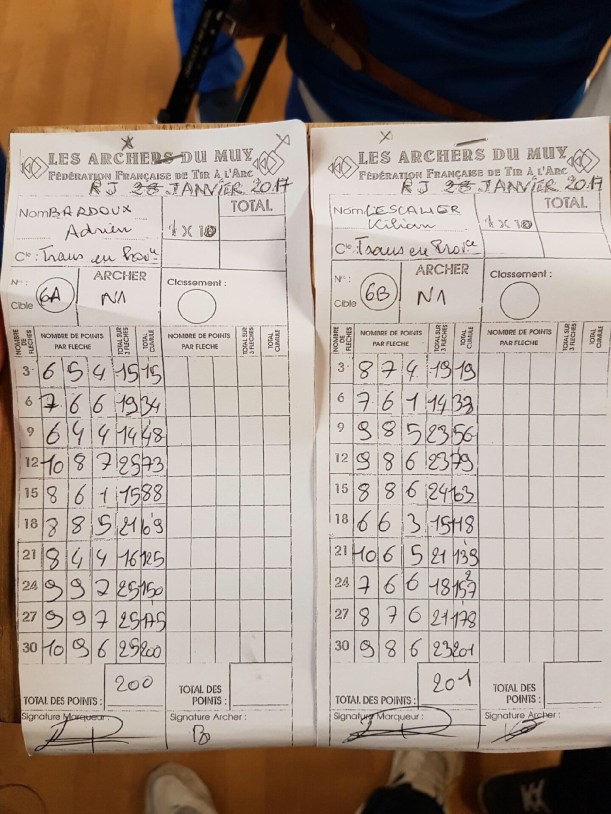 LES ARCHERS DU MUY
FÉDÉRATION FRANÇAISE DE TIR À L'ARC
RJ 28 JANVIER 2017
Nom BARDOUX
Adrien
1 X 10
TOTAL
Cie : Trans en Provce
N° :
Cible
6A
ARCHER
N1
Classement :
NOMBRE DE FLÈCHES
NOMBRE DE POINTS PAR FLÈCHE
TOTAL SUR 3 FLÈCHES
TOTAL CUMULÉ
NOMBRE DE POINTS PAR FLÈCHE
TOTAL SUR 3 FLÈCHES
TOTAL CUMULÉ
3 6 5 4 15 15
6 7 6 6 19 34
9 6 4 4 14 48
12 10 8 7 25 73
15 8 6 1 15 88
18 8 8 5 21 109
21 8 4 4 16 125
24 9 9 7 25 150
27 9 9 7 25 175
30 10 9 6 25 200
TOTAL DES POINTS :
200
TOTAL DES POINTS :
Signature Marqueur :
Signature Archer :
LES ARCHERS DU MUY
FÉDÉRATION FRANÇAISE DE TIR À L'ARC
RJ 28 JANVIER 2017
Nom LESCALIER
Kilian
1 X 10
TOTAL
Cie : Trans en Provce
N° :
Cible
6B
ARCHER
N1
Classement :
NOMBRE DE FLÈCHES
NOMBRE DE POINTS PAR FLÈCHE
TOTAL SUR 3 FLÈCHES
TOTAL CUMULÉ
NOMBRE DE POINTS PAR FLÈCHE
TOTAL SUR 3 FLÈCHES
TOTAL CUMULÉ
3 8 7 4 19 19
6 7 6 1 14 33
9 9 8 5 23 56
12 9 8 6 23 79
15 8 8 6 24 103
18 6 6 3 15 118
21 10 6 5 21 139
24 7 6 6 18 157
27 8 7 6 21 178
30 9 8 6 23 201
TOTAL DES POINTS :
201
TOTAL DES POINTS :
Signature Marqueur :
Signature Archer :